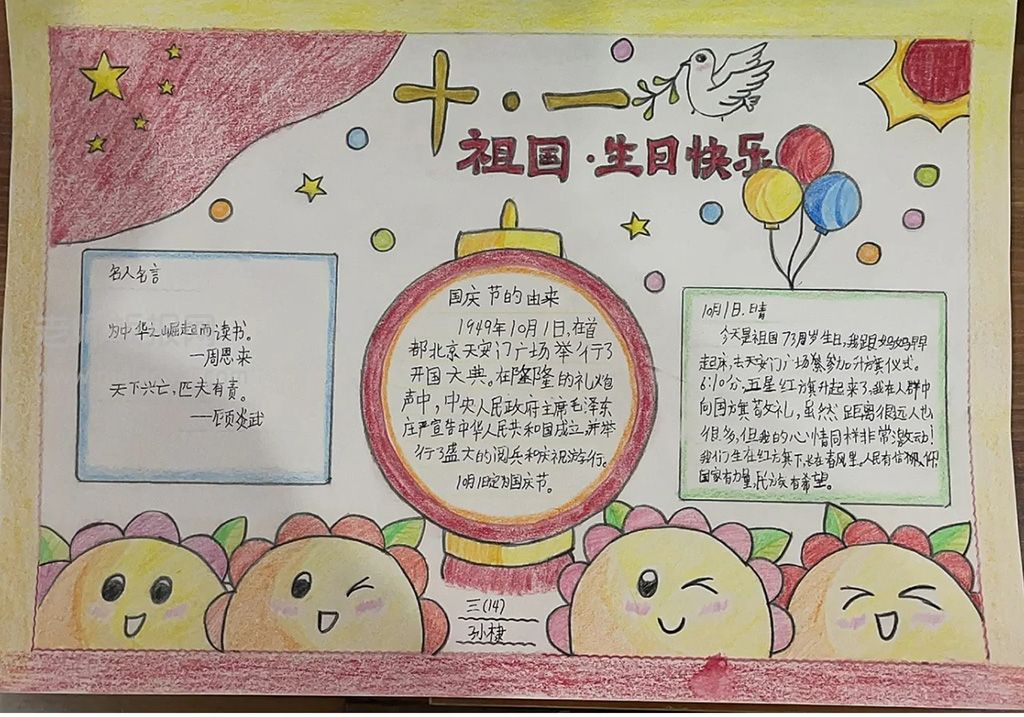 十·一
祖国·生日快乐
名人名言
为中华之崛起而读书。
—周恩来
天下兴亡,匹夫有责。
—顾炎武
国庆节的由来
1949年10月1日,在首
都北京天安门广场举行了
开国大典。在隆隆的礼炮
声中,中央人民政府主席毛泽东
庄严宣告中华人民共和国成立,并举
行了盛大的阅兵和庆祝游行。
10月1日定为国庆节。
10月1日.晴
今天是祖国73周岁生日,我跟妈妈早早
起床,去天安门广场参加升旗仪式。
6:10分,五星红旗升起来了,我在人群中
向国旗敬礼,虽然距离很远人也
很多,但我的心情同样非常激动!
我们生在红旗下,长在春风里,人民有信仰,
国家有力量,民族有希望。
三(14)
孙棣